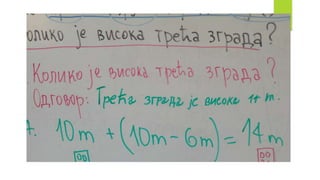 олико је висока трећа зграда?
Колико је висока трећа зграда?
Одговор: Трећа зграда је висока 14 m.
7. 10m + (10m - 6m) = 14m